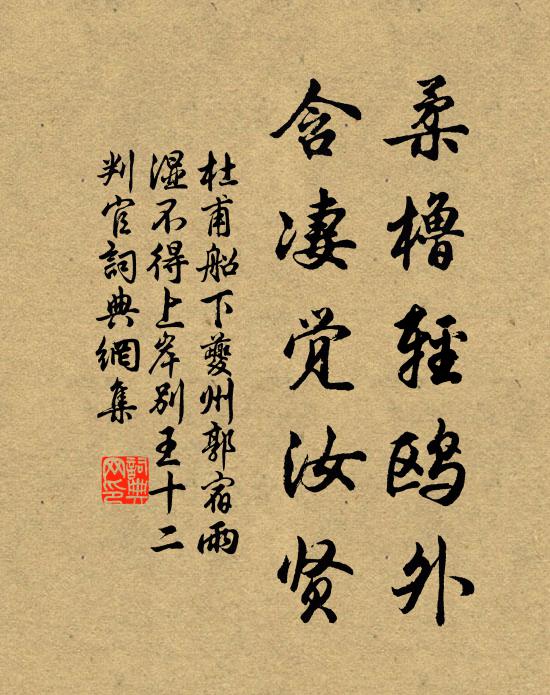 柔櫓輕鸥外
含凄觉汝贤
杜甫船下夔州郭宿雨
濕不得上岸别王十二
判官詞典網集
詞典
网印